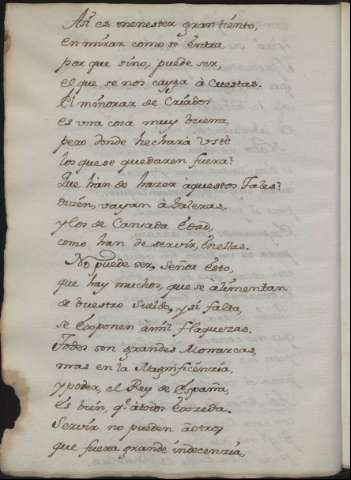 Assi es menester gran tiento,
en mirar como se entra,
por que sino, puede ser,
el que se nos cayga à Cuestas.
El minorar de Criados
es vna cosa muy buena,
pero donde hechara vsté
los que se quedaren fuera?
Que hàn de hazer àquestos Tales?
diràn, vayan à Galeras,
y los de Cansada Edad,
como han de servir, Enellas.
No puede ser, Señor Esto,
que hay muchos, que se àlimentan
de vuestro Sueldo, y si falta,
se Exponen à mil flaquezas.
Todos son grandes Monarcas,
mas en la Magnificenzia,
y poder, el Rey de España,
Es bien, q.e àtodos Exzeda.
Servir no pueden à otro,
que fuera grande indecenzia,